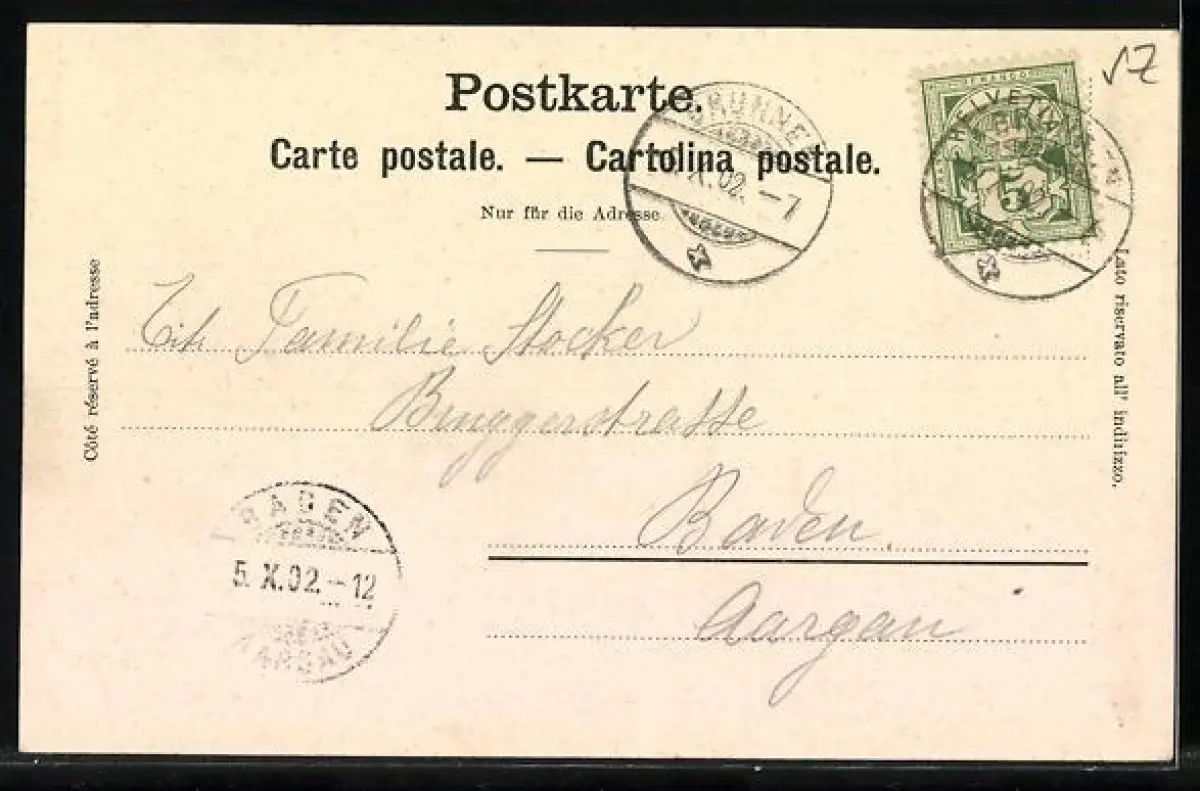 Postkarte.
Carte postale. — Cartolina postale.
Nur für die Adresse
BRUNNEN
X.02.–7
FRANCO
HELVETIA
5
Côté réservé à l'adresse
Lato riservato all' indirizzo.
Tit. Familie Stocker
Bruggerstrasse
Baden
Aargau
BADEN
5. X.02.–12
AARGAU